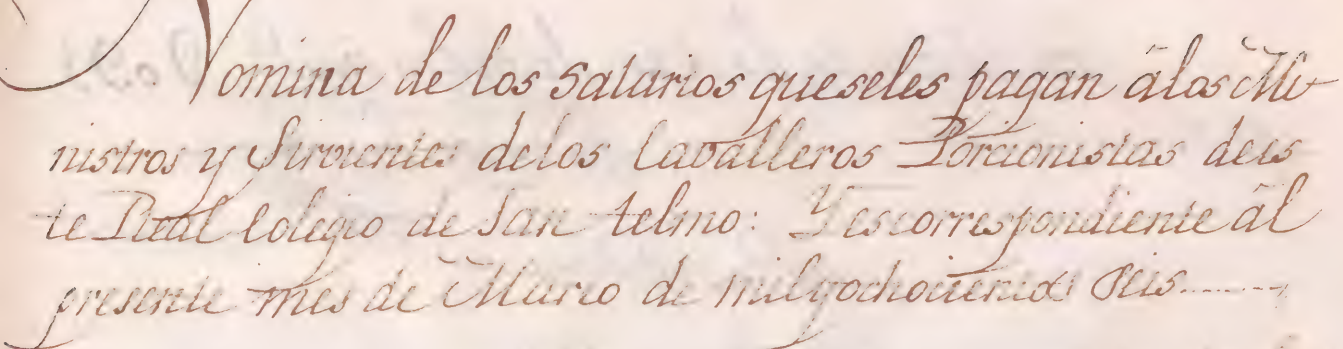 Nomina de los salarios queseles pagan âlos Mi
nistros y Sirvientes delos Cavalleros Porcionistas dees
te Real Colegio de San telmo: Y escorrespondiente âl
presente mes de Marzo de milyochocientos Seis